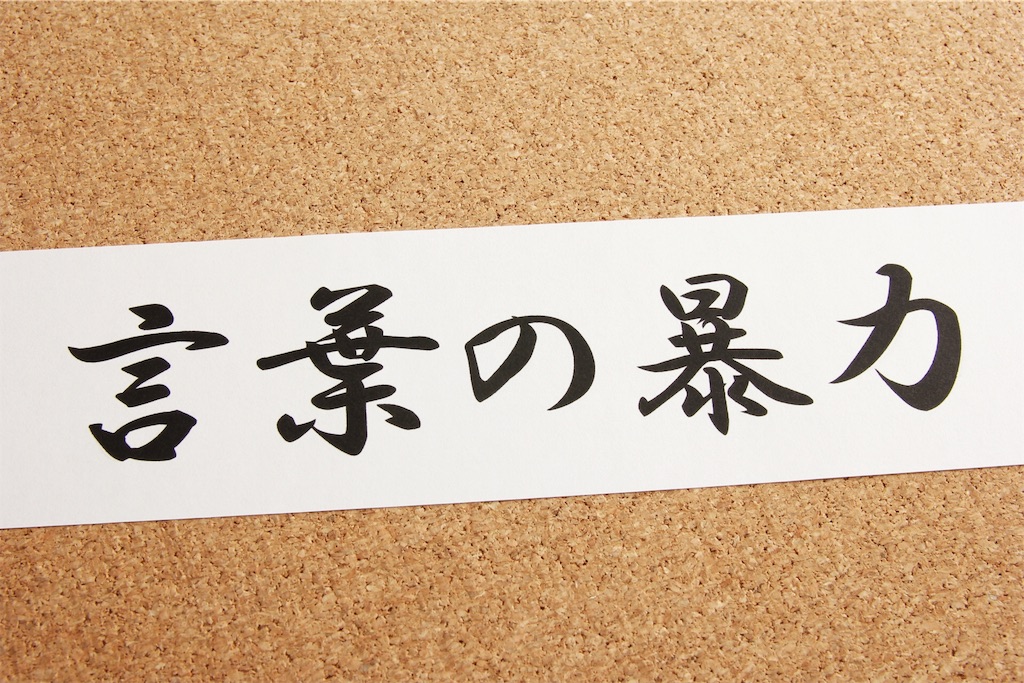 言葉の暴力